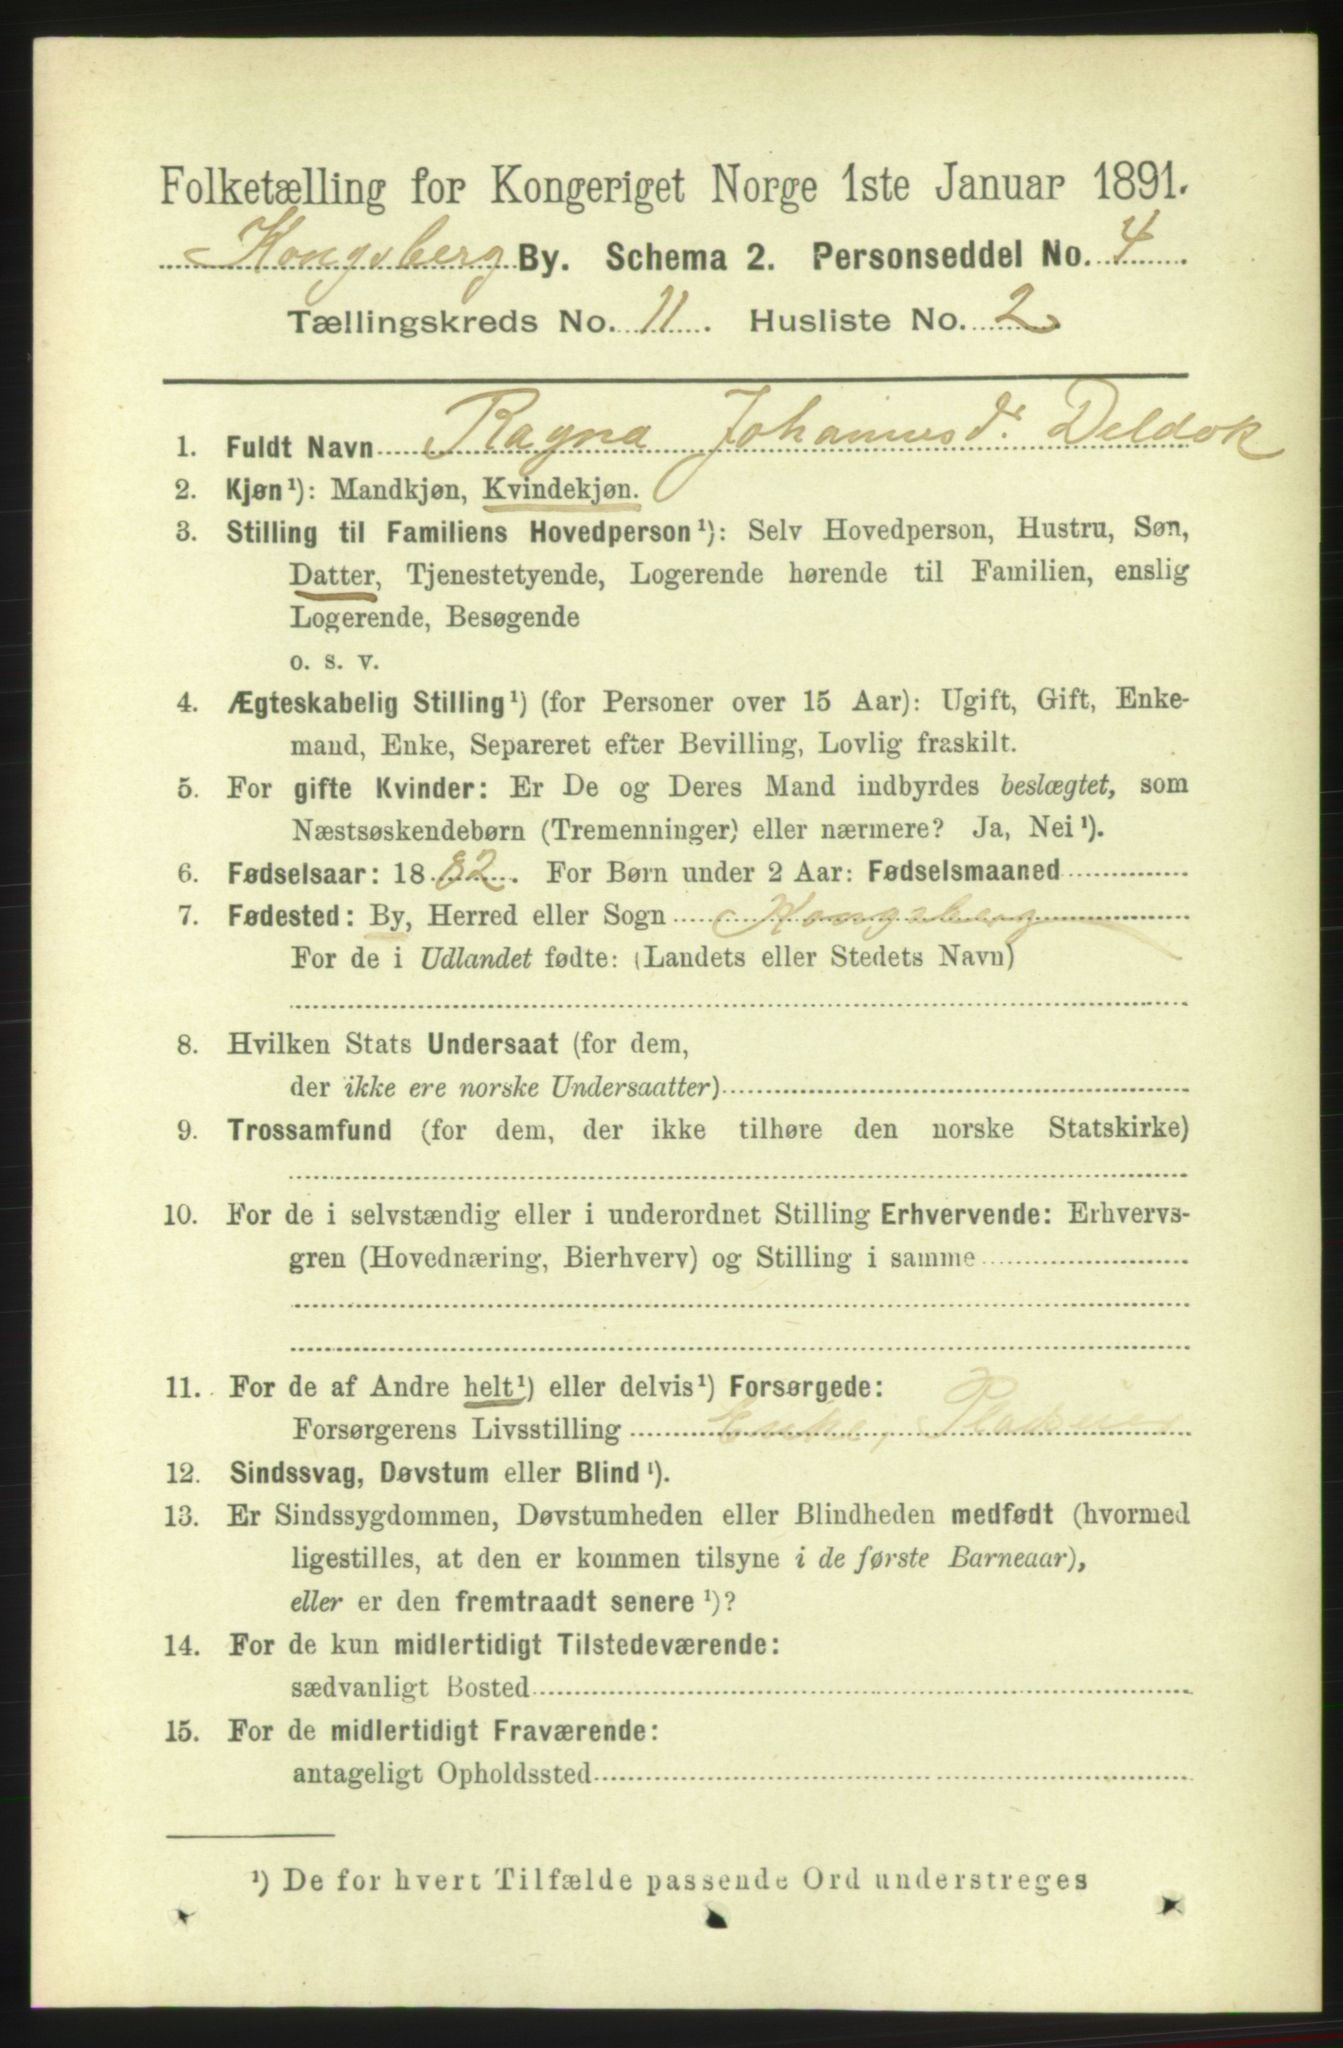 Folketælling for Kongeriget Norge 1ste Januar 1891.
Kongsberg By. Schema 2. Personseddel No. 4
Tællingskreds No. 11. Husliste No. 2
1. Fuldt Navn Ragna Johannesdr. Deldok
2. Kjøn¹): Mandkjøn, Kvindekjøn.
3. Stilling til Familiens Hovedperson¹): Selv Hovedperson, Hustru, Søn,
Datter, Tjenestetyende, Logerende hørende til Familien, enslig
Logerende, Besøgende
o. s. v.
4. Ægteskabelig Stilling¹) (for Personer over 15 Aar): Ugift, Gift, Enke-
mand, Enke, Separeret efter Bevilling, Lovlig fraskilt.
5. For gifte Kvinder: Er De og Deres Mand indbyrdes beslægtet, som
Næstsøskendebørn (Tremenninger) eller nærmere? Ja, Nei¹).
6. Fødselsaar: 1882. For Børn under 2 Aar: Fødselsmaaned
7. Fødested: By, Herred eller Sogn Kongsberg
For de i Udlandet fødte: (Landets eller Stedets Navn)
8. Hvilken Stats Undersaat (for dem,
der ikke ere norske Undersaatter)
9. Trossamfund (for dem, der ikke tilhøre den norske Statskirke)
10. For de i selvstændig eller i underordnet Stilling Erhvervende: Erhvervs-
gren (Hovednæring, Bierhverv) og Stilling i samme
11. For de af Andre helt¹) eller delvis¹) Forsørgede:
Forsørgerens Livsstilling Enke,
12. Sindssvag, Døvstum eller Blind¹).
13. Er Sindssygdommen, Døvstumheden eller Blindheden medfødt (hvormed
ligestilles, at den er kommen tilsyne i de første Barneaar),
eller er den fremtraadt senere¹)?
14. For de kun midlertidigt Tilstedeværende:
sædvanligt Bosted
15. For de midlertidigt Fraværende:
antageligt Opholdssted
¹) De for hvert Tilfælde passende Ord understreges